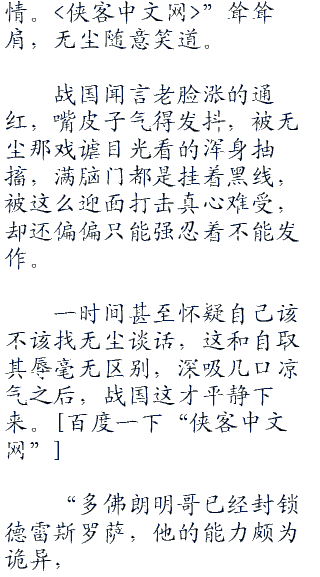 情。<侠客中文网>”耸耸
肩，无尘随意笑道。
战国闻言老脸涨的通
红，嘴皮子气得发抖，被无
尘那戏谑目光看的浑身抽
搐，满脑门都是挂着黑线，
被这么迎面打击真心难受，
却还偏偏只能强忍着不能发
作。
一时间甚至怀疑自己该
不该找无尘谈话，这和自取
其辱毫无区别，深吸几口凉
气之后，战国这才平静下
来。[百度一下“侠客中文
网”]
“多佛朗明哥已经封锁
德雷斯罗萨，他的能力颇为
诡异，